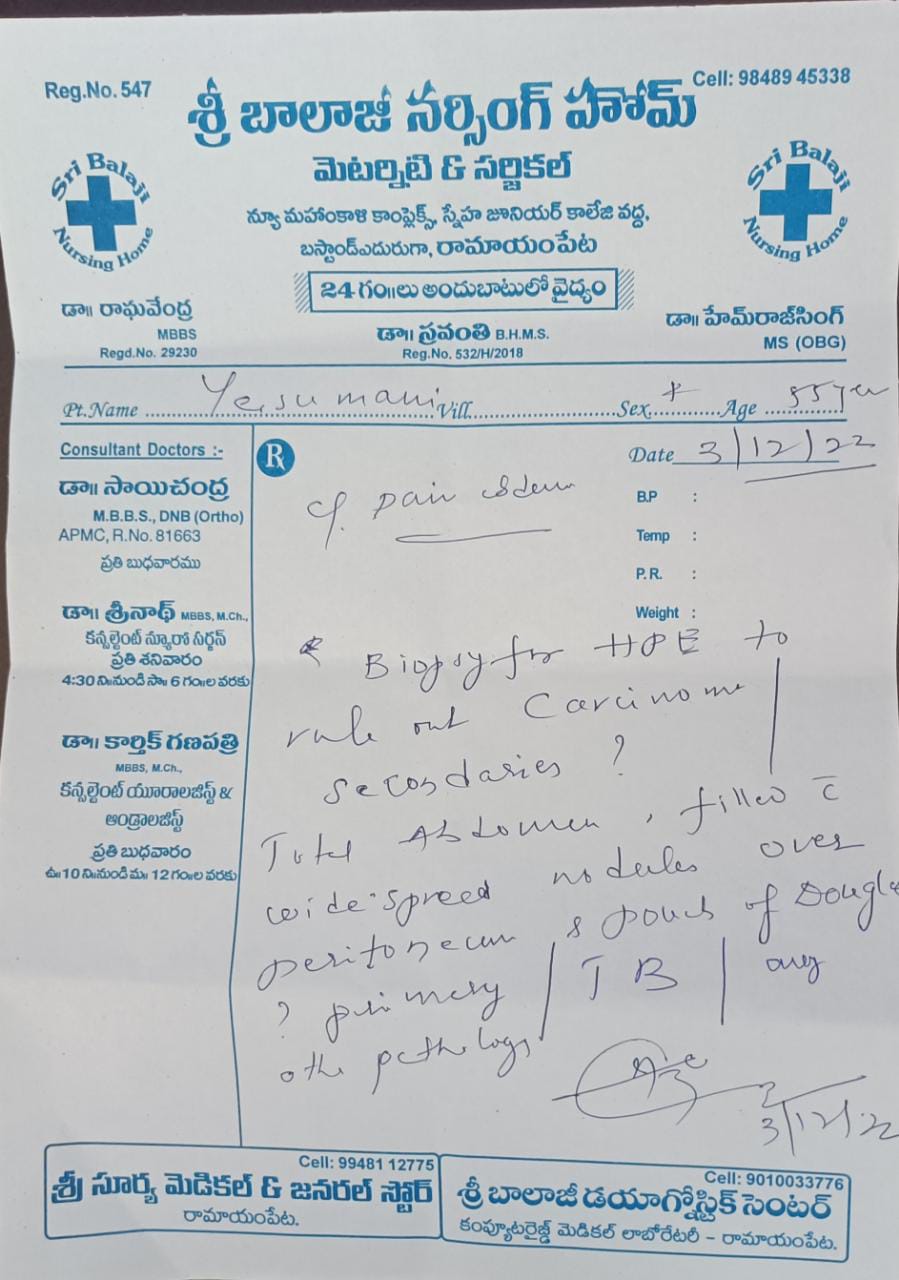 Reg.No. 547
Cell: 98489 45338
శ్రీ బాలాజీ నర్సింగ్ హోమ్
మెటర్నిటి & సర్జికల్
Sri Balaji Nursing Home
Sri Balaji Nursing Home
న్యూ మహంకాళి కాంప్లెక్స్, స్నేహ జూనియర్ కాలేజి వద్ద,
బస్టాండ్ఎదురుగా, రామాయంపేట
24 గం॥లు అందుబాటులో వైద్యం
డా॥ రాఘవేంద్ర
MBBS
Regd.No. 29230
డా॥ స్రవంతి B.H.M.S.
Reg.No. 532/H/2018
డా॥ హేమ్‌రాజ్‌సింగ్
MS (OBG)
Pt.Name Yesumani Vill. Sex Age 55 yr
Consultant Doctors :-
డా॥ సాయిచంద్ర
M.B.B.S., DNB (Ortho)
APMC, R.No. 81663
ప్రతి బుధవారము
డా॥ శ్రీనాథ్ MBBS, M.Ch.,
కన్సల్టెంట్ న్యూరో సర్జన్
ప్రతి శనివారం
4:30 ని॥నుండి సా॥ 6 గం॥ల వరకు
డా॥ కార్తిక్ గణపత్రి
MBBS, M.Ch.,
కన్సల్టెంట్ యూరాలజిస్ట్ &
ఆండ్రాలజిస్ట్
ప్రతి బుధవారం
ఉ॥10 ని॥నుండి మ॥ 12 గం॥ల వరకు
Rx
Date 3/12/22
B.P :
Temp :
P.R. :
Weight :
c/o. pain
Biopsy for HPE to
rule out Carcinoma
secondaries ?
Total Abdomen, filled c̄
wide-spread nodules over
peritoneum & pouch of Dougl
? primary / TB / any
othe pathology
3/12/22
Cell: 99481 12775
శ్రీ సూర్య మెడికల్ & జనరల్ స్టోర్
రామాయంపేట.
Cell: 9010033776
శ్రీ బాలాజీ డయాగ్నోస్టిక్ సెంటర్
కంప్యూటరైజ్డ్ మెడికల్ లాబోరేటరీ - రామాయంపేట.